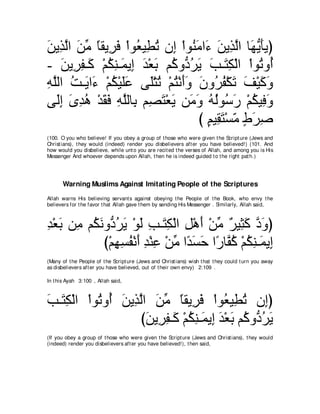 (يَأَيُّهَا الَّذِينَ ءَامَنُواْ إِن تُطِيعُواْ فَرِيقًا مِّنَ الَّذِينَ
أُوتُواْ الْكِتَـبَ يَرُدُّوكُم بَعْدَ إِيمَـنِكُمْ كَـفِرِينَ -
وَكَيْفَ تَكْفُرُونَ وَأَنْتُمْ تُتْلَى عَلَيْكُمْ ءَايَـتُ اللَّهِ
وَفِيكُمْ رَسُولُهُ وَمَن يَعْتَصِم بِاللَّهِ فَقَدْ هُدِىَ إِلَى
صِرَطٍ مّسْتَقِيمٍ )
(100. O you who believe! If you obey a group of those who were given the Scripture (Jews and
Christians), they would (indeed) render you disbelievers after you have believed!) (101. And
how would you disbelieve, while unto you are recited the verses of Allah, and among you is His
Messenger And whoever depends upon Allah, then he is indeed guided to the right path )
Warning Muslims Against Imitating People of the Scriptures
Allah warns His believing servants against obeying the People of the Book, who envy the
believers for the favor that Allah gave them by sending His Messenger . Similarly, Allah said,
(وَدَّ كَثِيرٌ مِّنْ أَهْلِ الْكِتَـبِ لَوْ يَرُدُّونَكُم مِن بَعْدِ
إِيمَـنِكُمْ كُفَّارًا حَسَدًا مِّنْ عِنْدِ أَنْفُسِهِمْ)
(Many of the People of the Scripture (Jews and Christians) wish that they could turn you away
as disbelievers after you have believed, out of their own envy) 2:109 .
In this Ayah 3:100 , Allah said,
(إِن تُطِيعُواْ فَرِيقًا مِّنَ الَّذِينَ أُوتُواْ الْكِتَـبَ
يَرُدُّوكُم بَعْدَ إِيمَـنِكُمْ كَـفِرِينَ)
(If you obey a group of those who were given the Scripture (Jews and Christians), they would
(indeed) render you disbelievers after you have believed!), then said,